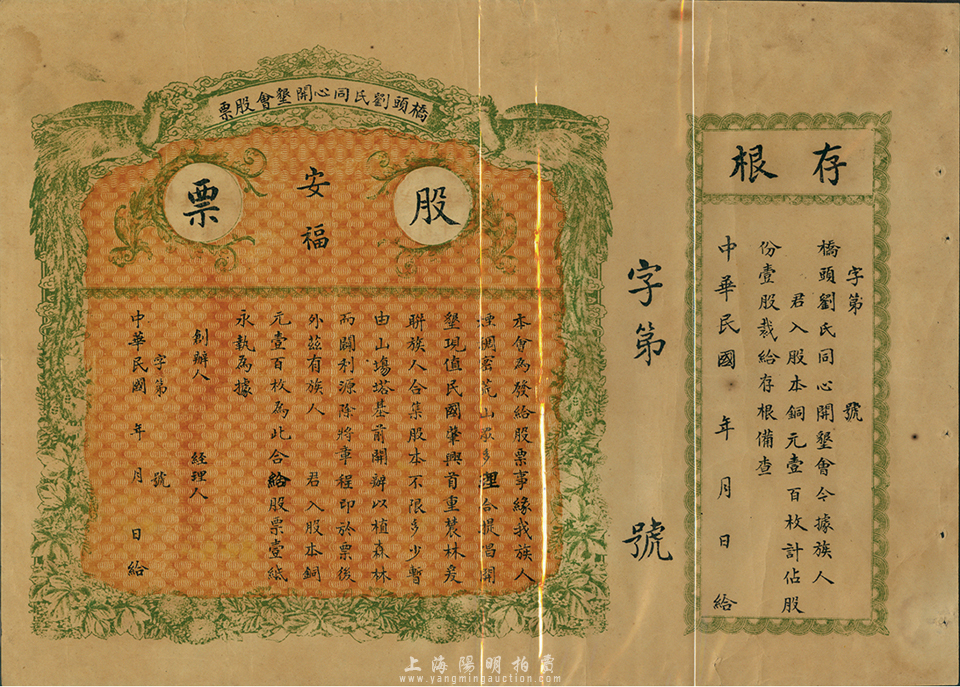 存根
字第 號
橋頭劉氏同心開墾會今據族人
君入股本銅元壹百枚計佔股
份壹股裁給存根備查
中華民國 年 月 日 給
字第 號
橋頭劉氏同心開墾會股票
股票
安福
本會為發給股票事緣我族人
煙稠密荒山眾多理合提倡開
墾現值民國肇興首重農林爰
聯族人合集股本不限多少暫
由山塲塔基前開辦以植森林
而闢利源除將章程印於票後
外茲有族人 君入股本銅
元壹百枚為此合給股票壹紙
永執為據
創辦人 經理人
字第 號
中華民國 年 月 日 給
上海陽明拍賣
www.yangmingauction.com